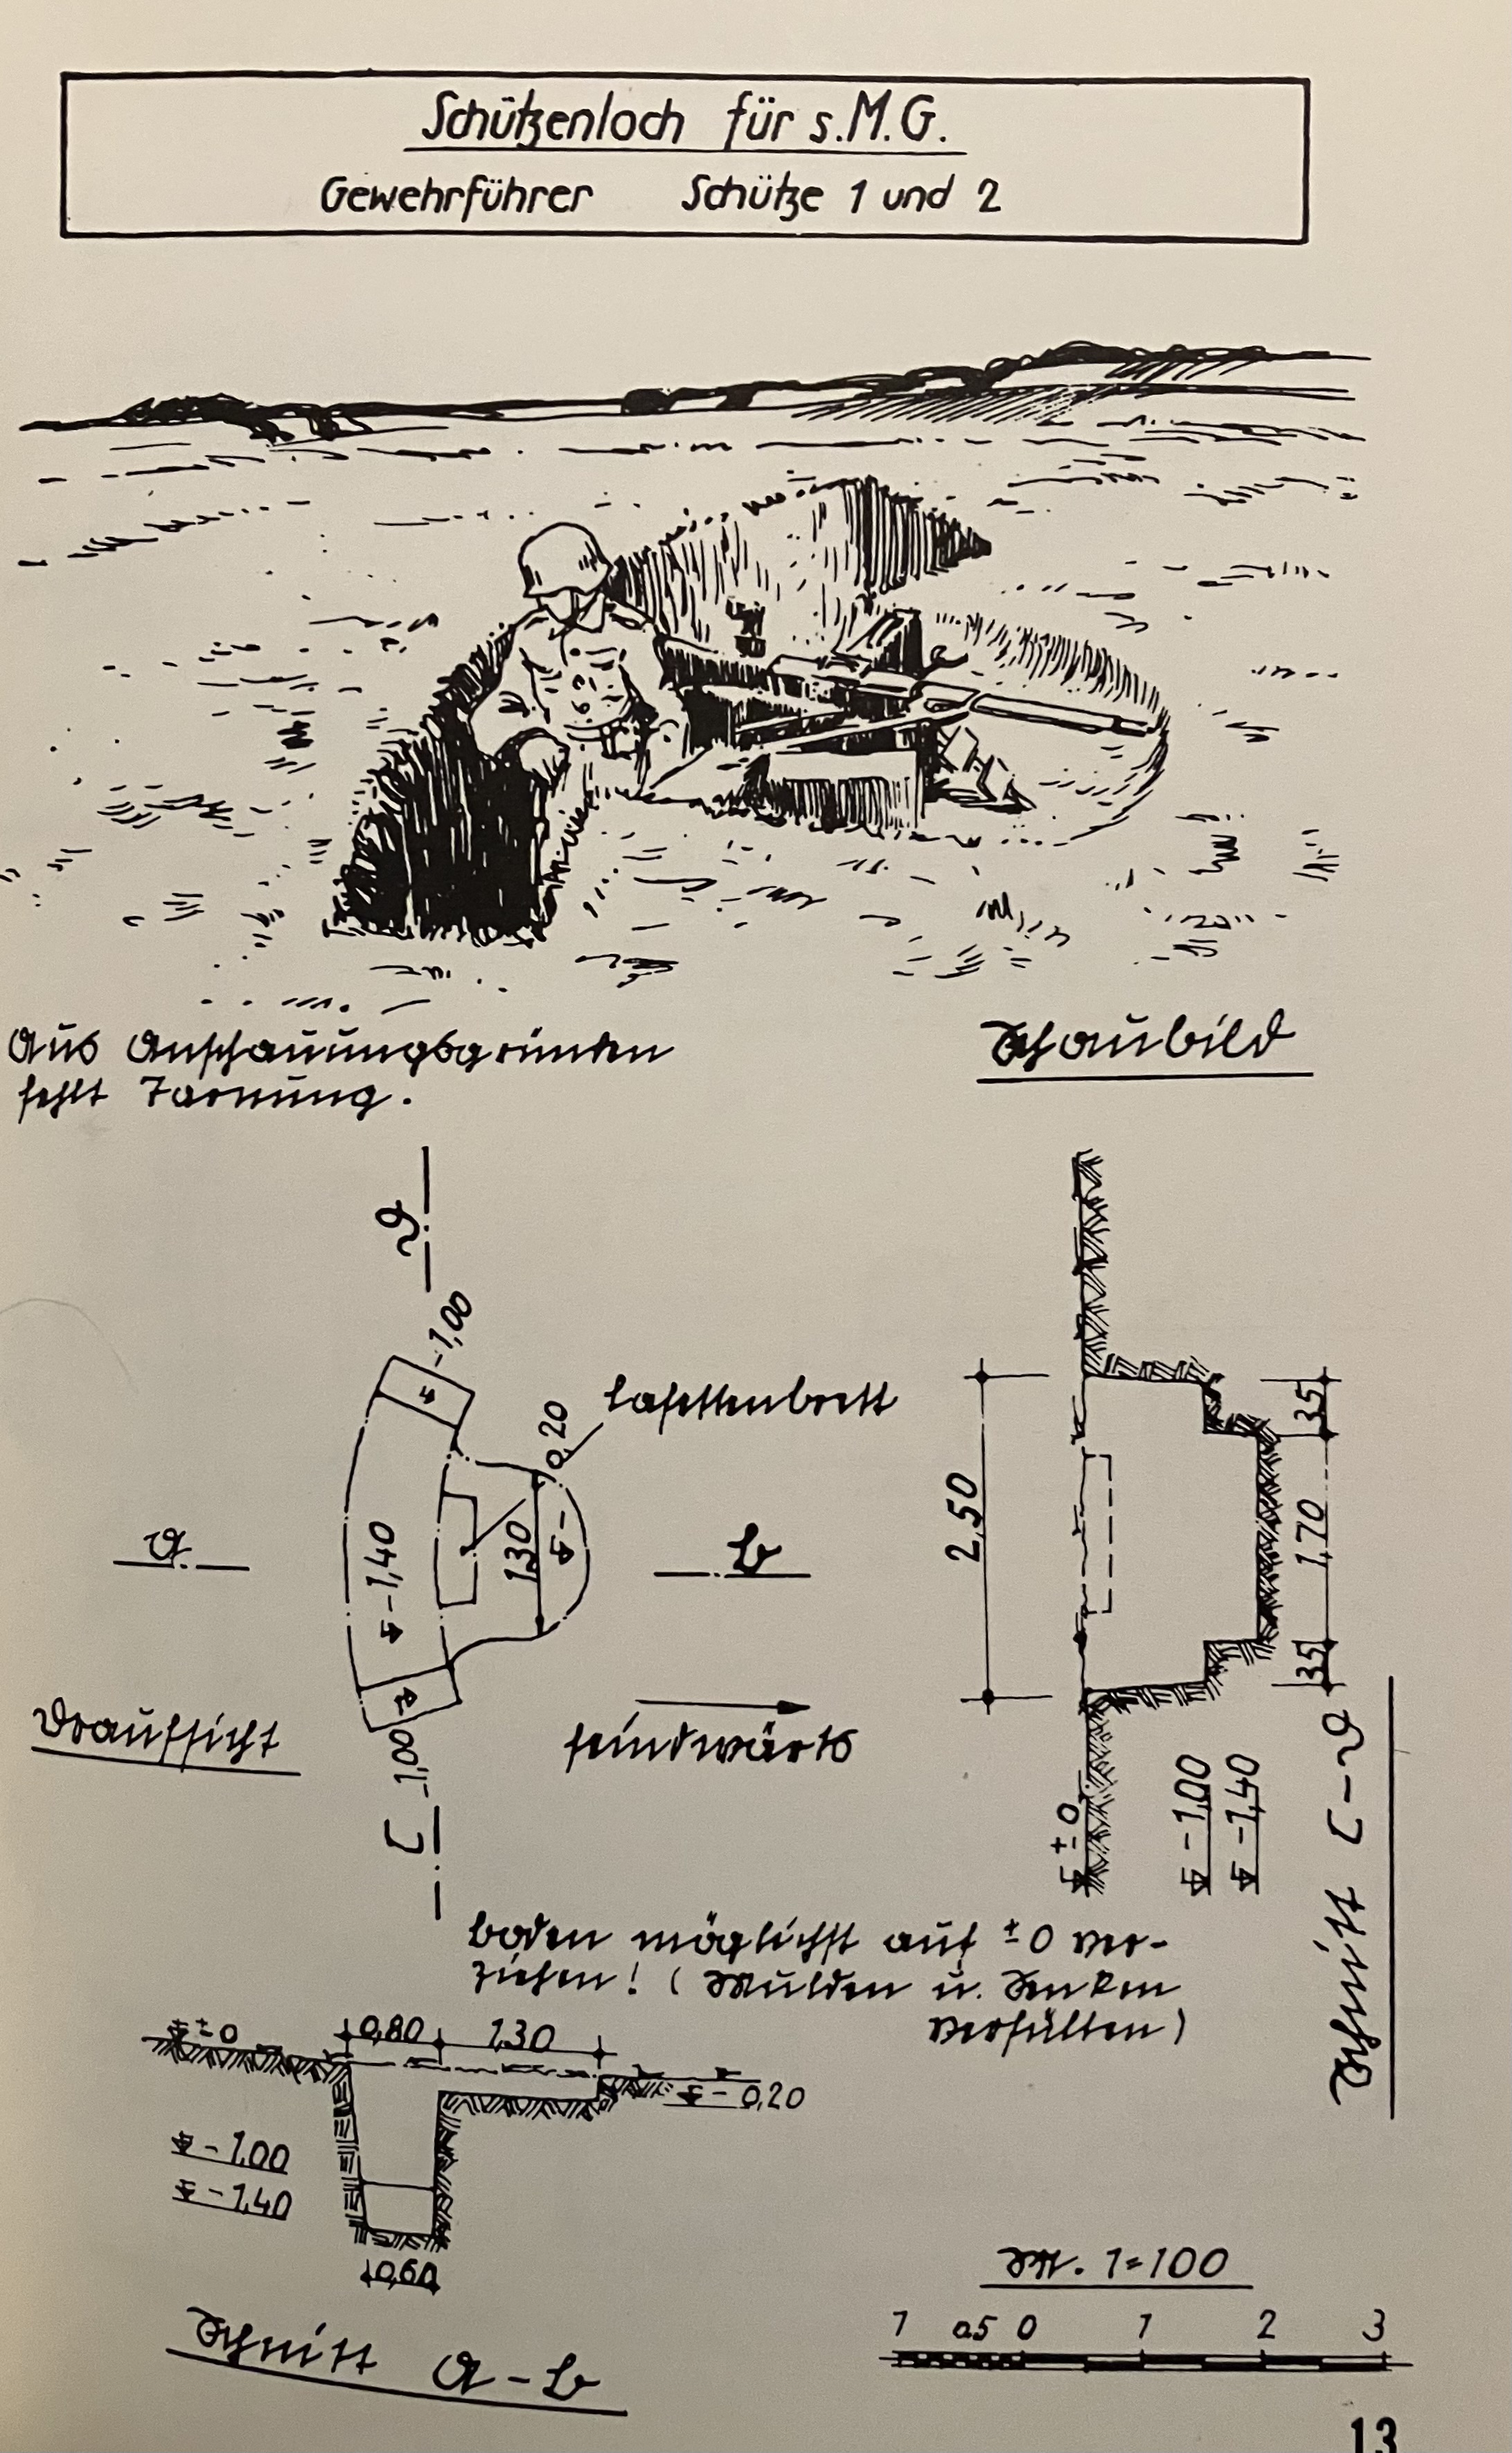 Schützenloch für s.M.G.
Gewehrführer Schütze 1 und 2
Aus Anschauungsgründen
fehlt Tarnung.
Schaubild
D
-1,00
0,20
Lafettenbrett
35
2,50
a
-1,40
1,30
b
1,70
35
Draufsicht
feindwärts
-1,00
C
± 0
-1,00
-1,40
Schnitt C-D
Boden möglichst auf ±0 ver-
ziehen! (Mulden u. Senken
verfüllen)
±0
0,80
1,30
-0,20
-1,00
-1,40
0,60
Schnitt a-b
M. 1=100
1 0.5 0 1 2 3
13